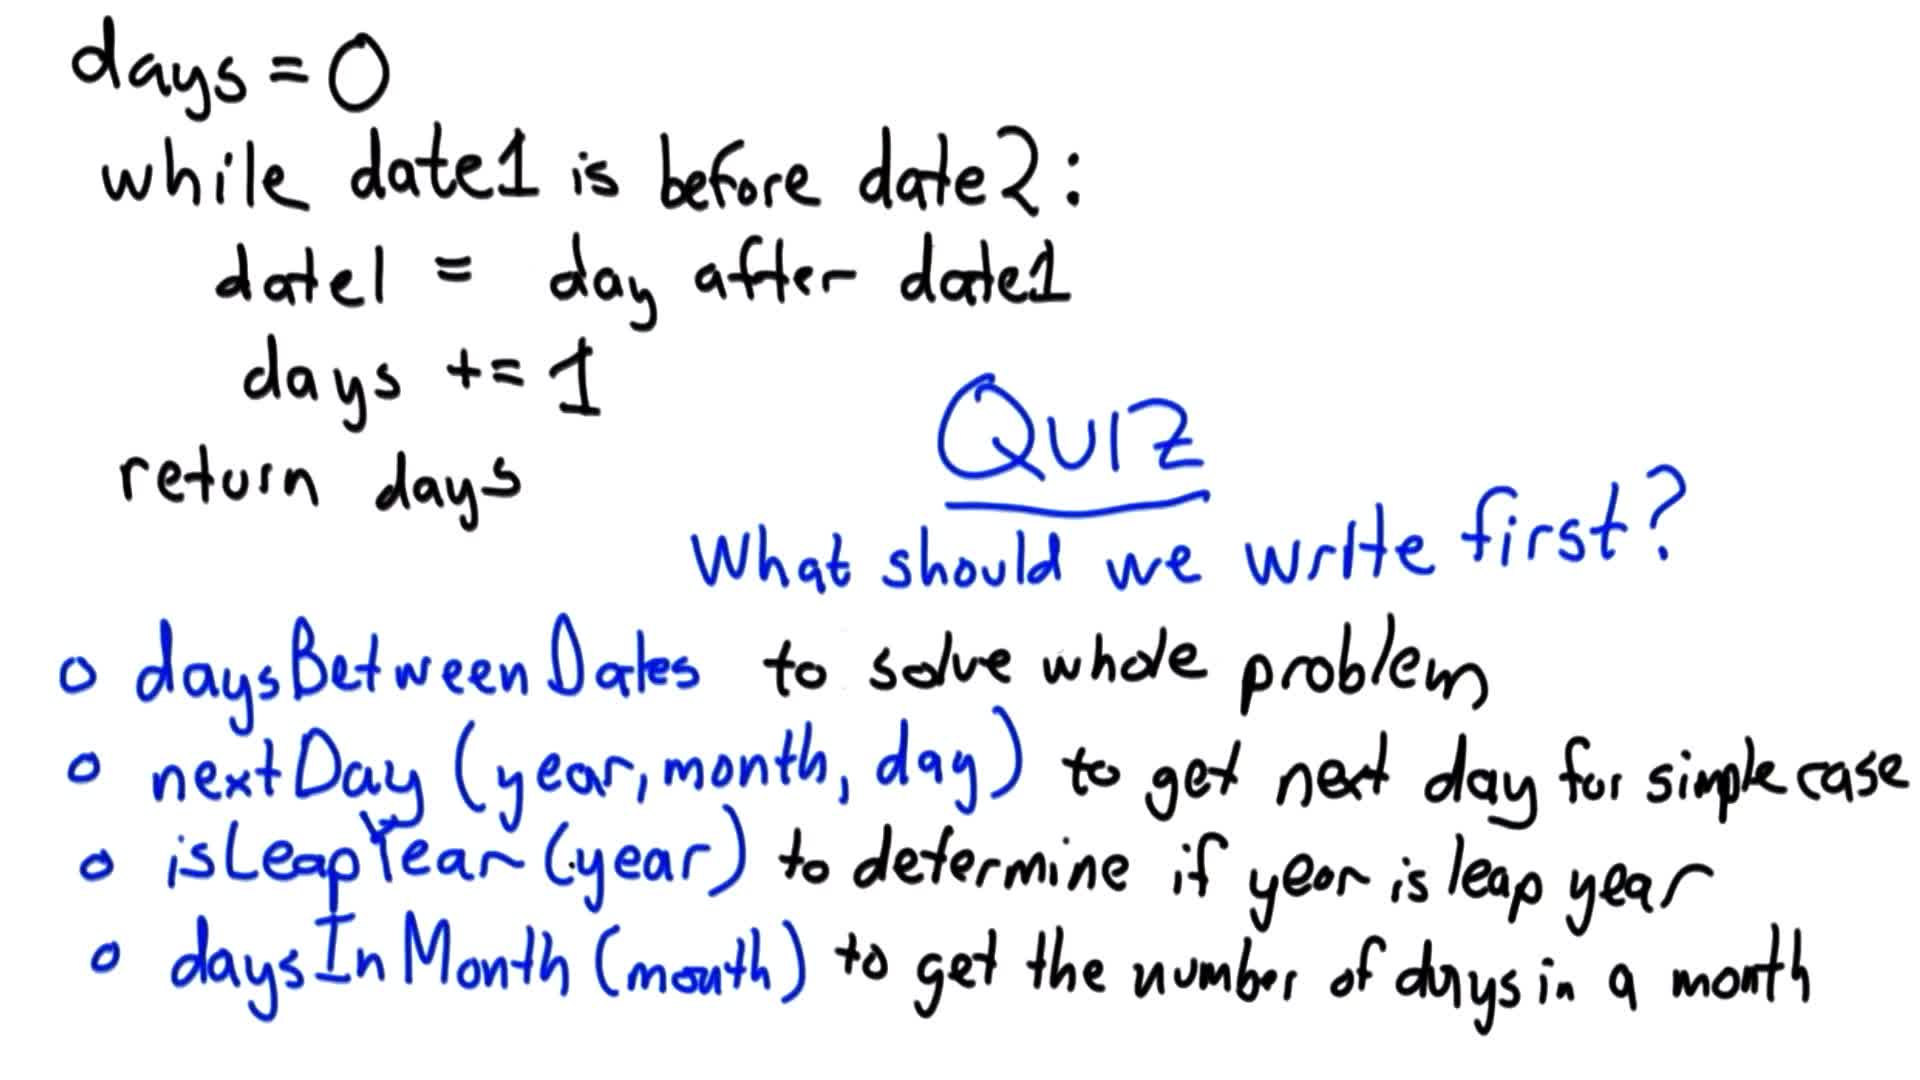 days = 0
while date1 is before date2:
date1 = day after date1
days += 1
return days
QUIZ
What should we write first?
daysBetweenDates to solve whole problem
nextDay (year, month, day) to get next day for simple case
isLeapYear (year) to determine if year is leap year
daysInMonth (month) to get the number of days in a month